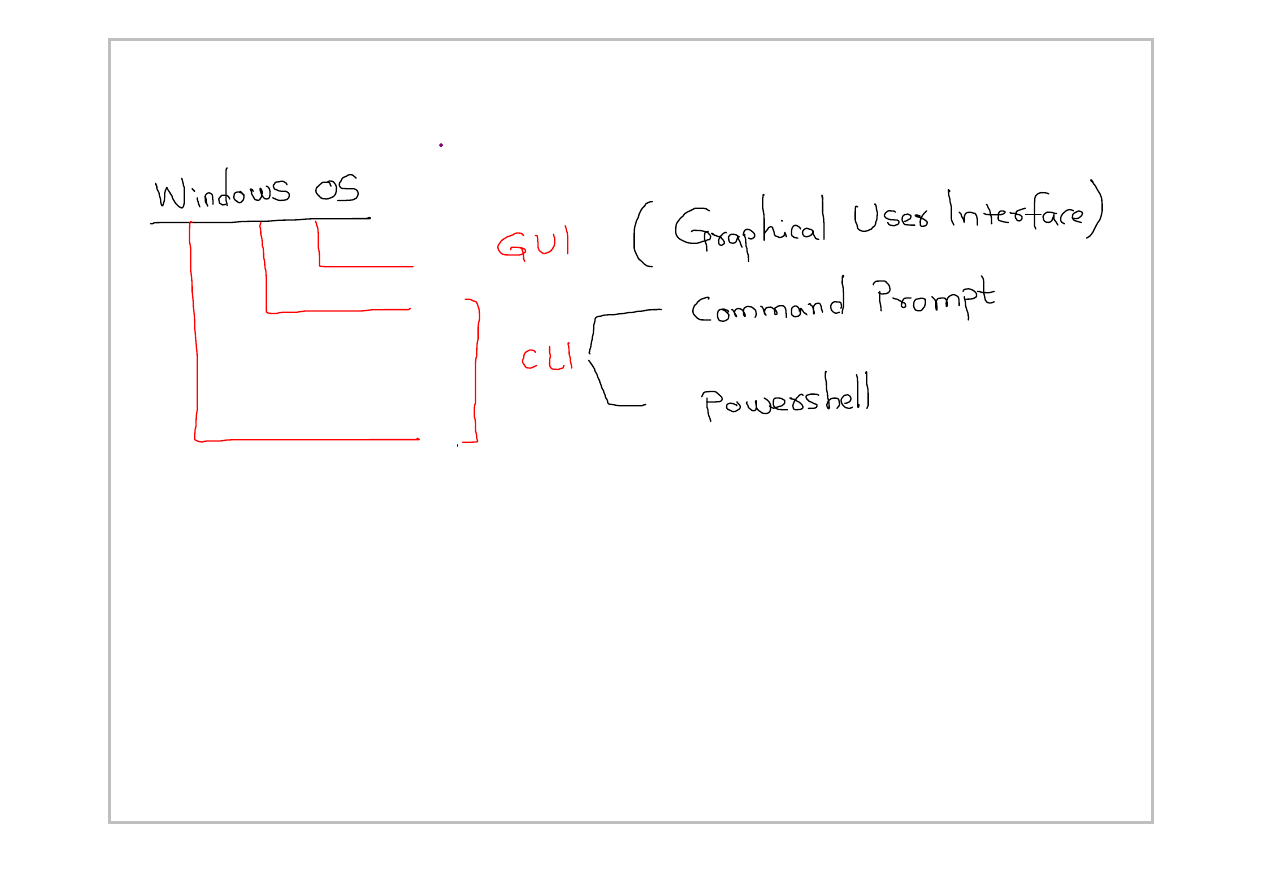 Windows OS
GUI (Graphical User Interface)
Command Prompt
CLI
Powershell